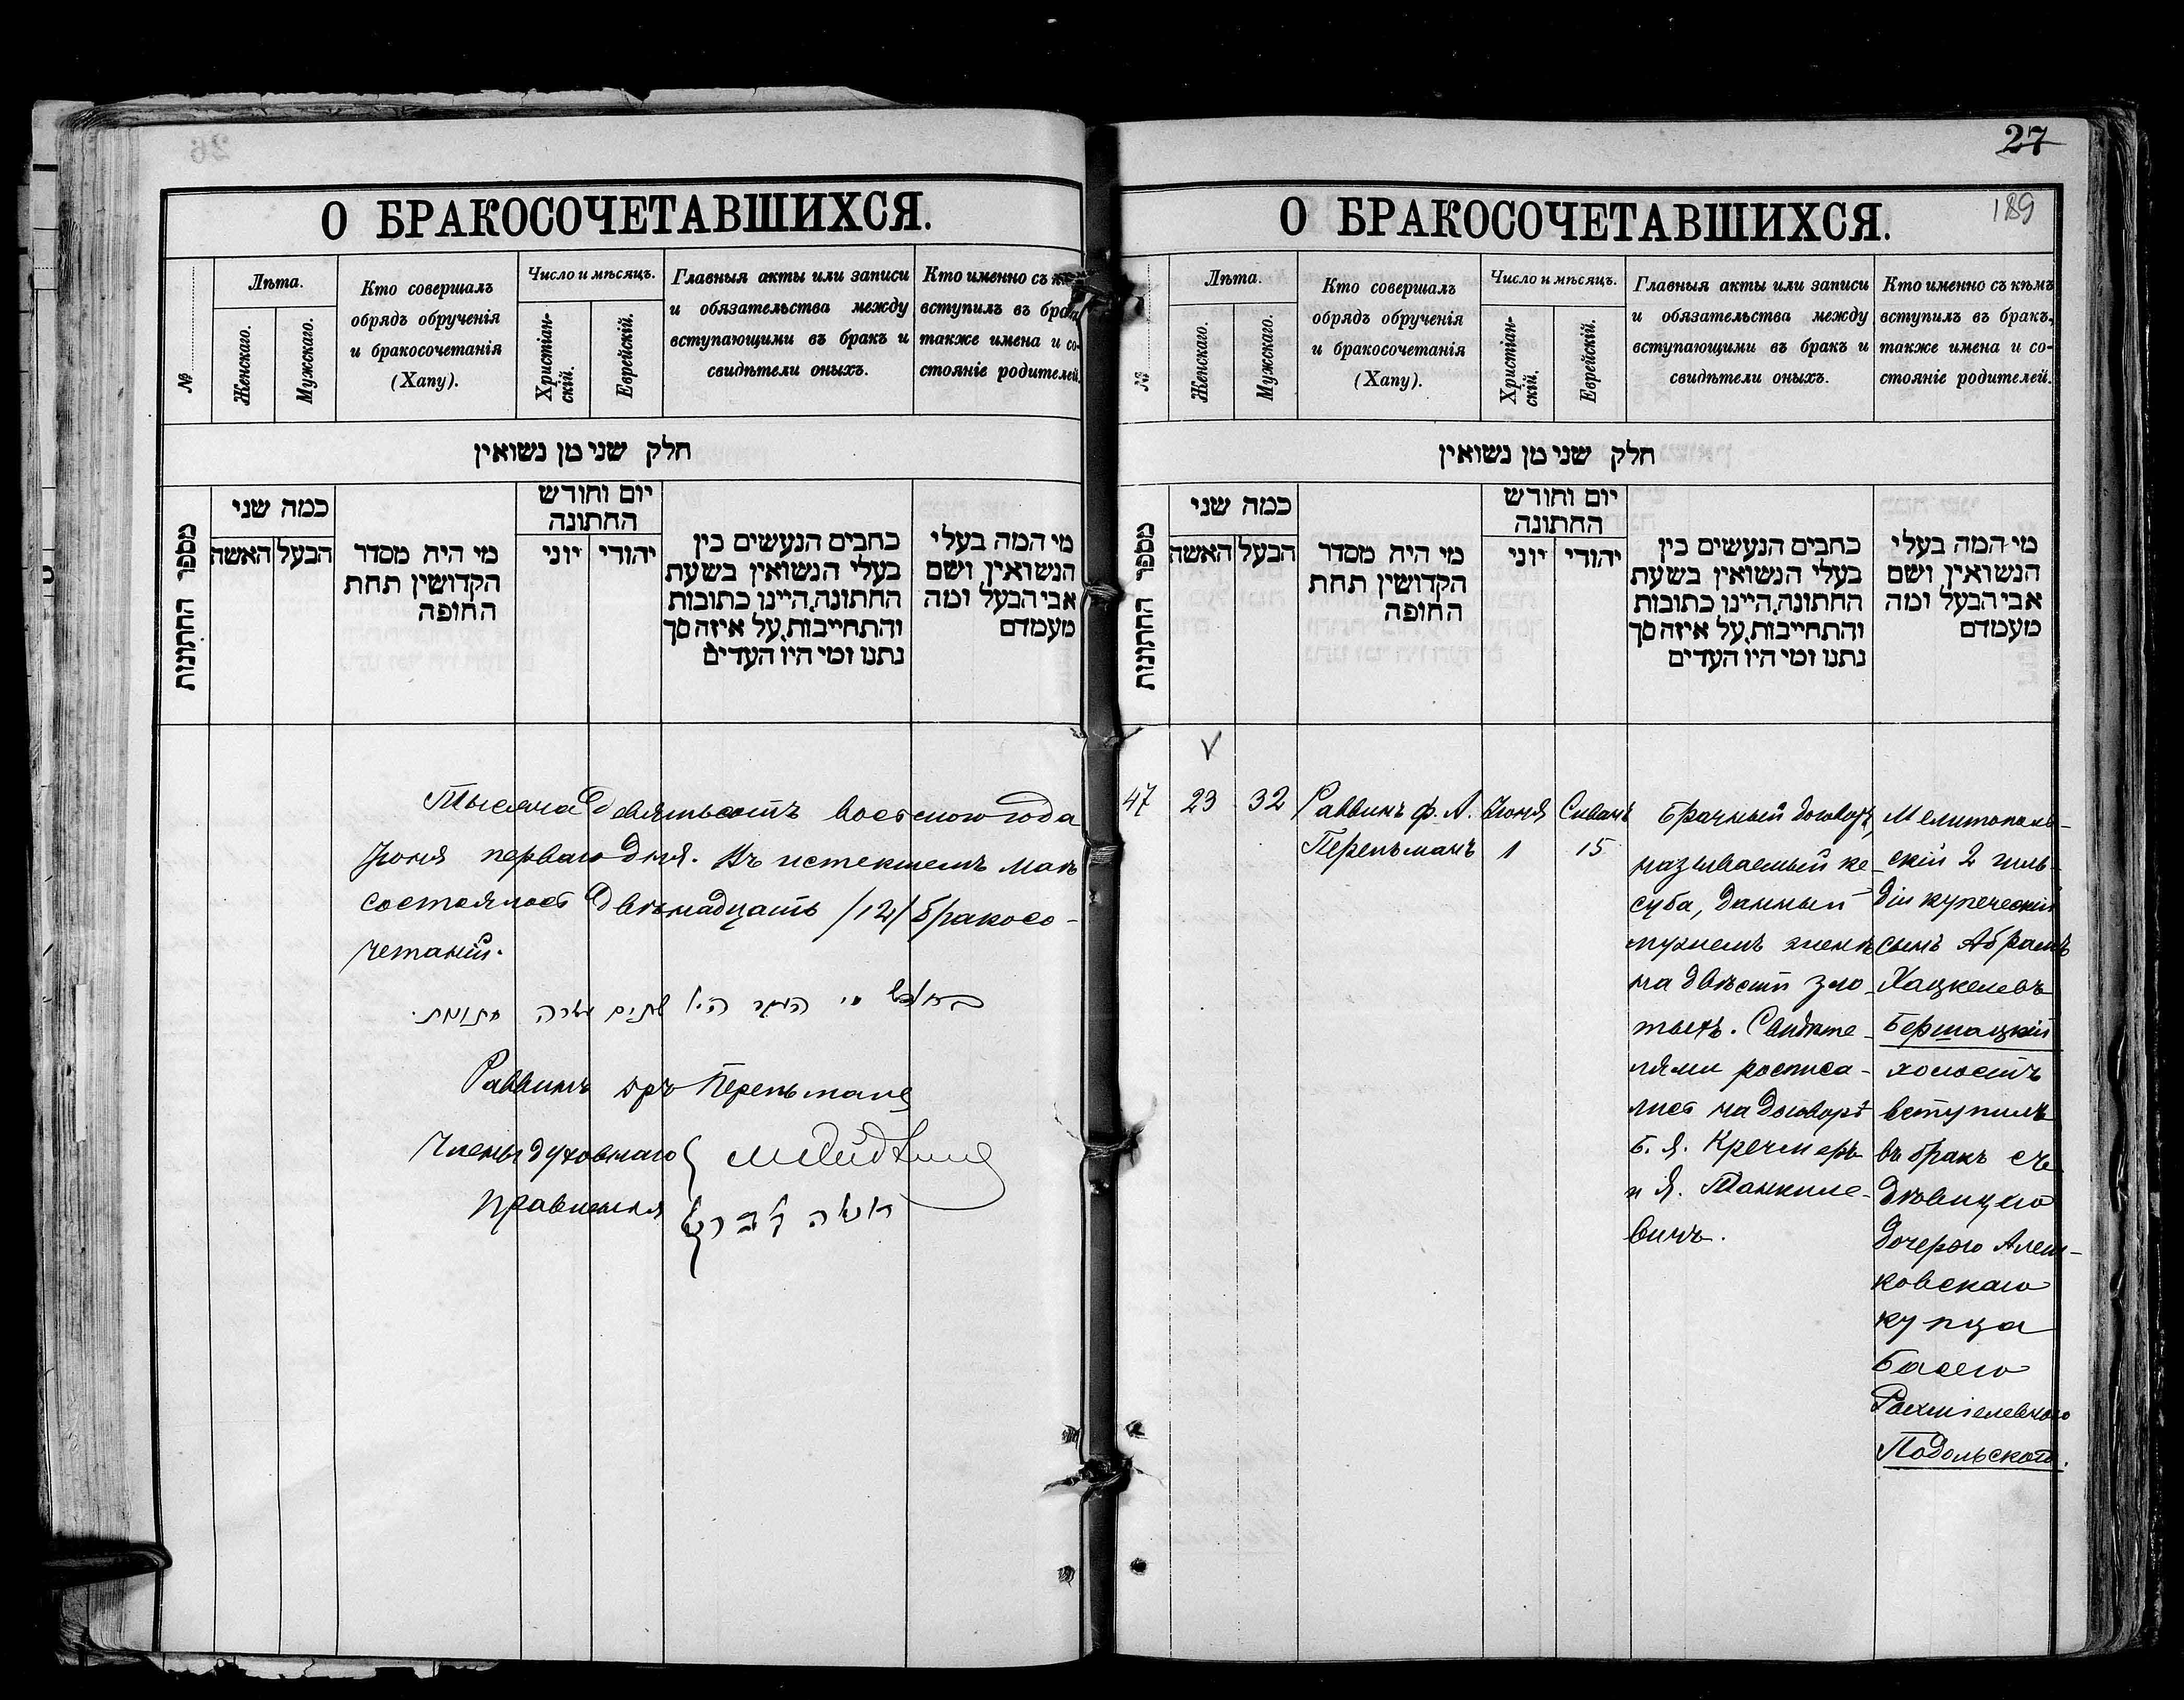 О БРАКОСОЧЕТАВШИХСЯ.
№
Лѣта.
Женскаго.
Мужскаго.
Кто совершалъ
обрядъ обрученія
и бракосочетанія
(Хапу).
Число и мѣсяцъ.
Христіан-
скій.
Еврейскій.
Главныя акты или записи
и обязательства между
вступающими въ бракъ и
свидѣтели оныхъ.
Кто именно съ
вступилъ въ бра
также имена и со-
стояніе родителей.
חלק שני מן נשואין
מספר החתונות
כמה שני
הבעל האשה
מי היה מסדר
הקדושין תחת
החופה
יום וחודש
החתונה
יהודי יוני
כתבים הנעשים בין
בעלי הנשואין בשעת
החתונה, היינו כתובות
והתחייבות, על איזה סך
נתנו ומי היו העדים
מי המה בעלי
הנשואין, ושם
אבי הבעל ומה
מעמדם
Тысяча девятьсотъ восьмого года
Іюня перваго дня. Въ истекшемъ маѣ
состоялось двѣнадцать /12/ бракосо-
четаній.
שתים עשרה חתונות.
Раввинъ дръ Перельманъ
Члены духовнаго
Правленія
27
189
О БРАКОСОЧЕТАВШИХСЯ.
№
Лѣта.
Женскаго.
Мужскаго.
Кто совершалъ
обрядъ обрученія
и бракосочетанія
(Хапу).
Число и мѣсяцъ.
Христіан-
скій.
Еврейскій.
Главныя акты или записи
и обязательства между
вступающими въ бракъ и
свидѣтели оныхъ.
Кто именно съ кѣмъ
вступилъ въ бракъ,
также имена и со-
стояніе родителей.
חלק שני מן נשואין
מספר החתונות
כמה שני
הבעל האשה
מי היה מסדר
הקדושין תחת
החופה
יום וחודש
החתונה
יהודי יוני
כתבים הנעשים בין
בעלי הנשואין בשעת
החתונה, היינו כתובות
והתחייבות, על איזה סך
נתנו ומי היו העדים
מי המה בעלי
הנשואין, ושם
אבי הבעל ומה
מעמדם
47
23
32
Раввинъ Ф. А.
Перельманъ
Іюня
1
Сиванъ
15
Брачный договоръ,
называемый ке-
суба, данный
мужемъ женѣ
на двѣсти зло-
тыхъ. Свидѣте-
лями росписа-
лись на договорѣ
Б. Я. Кречмеръ
и Я. Танкиле-
вичъ.
Мелитополь-
скій 2 гиль-
діи купеческій
сынъ Абрамъ
Хацкелевъ
Бершацкій
холостъ
вступилъ
въ бракъ съ
дѣвицею
дочерью Алеш-
ковскаго
купца
Басею
Рахміелевною
Подольскою.